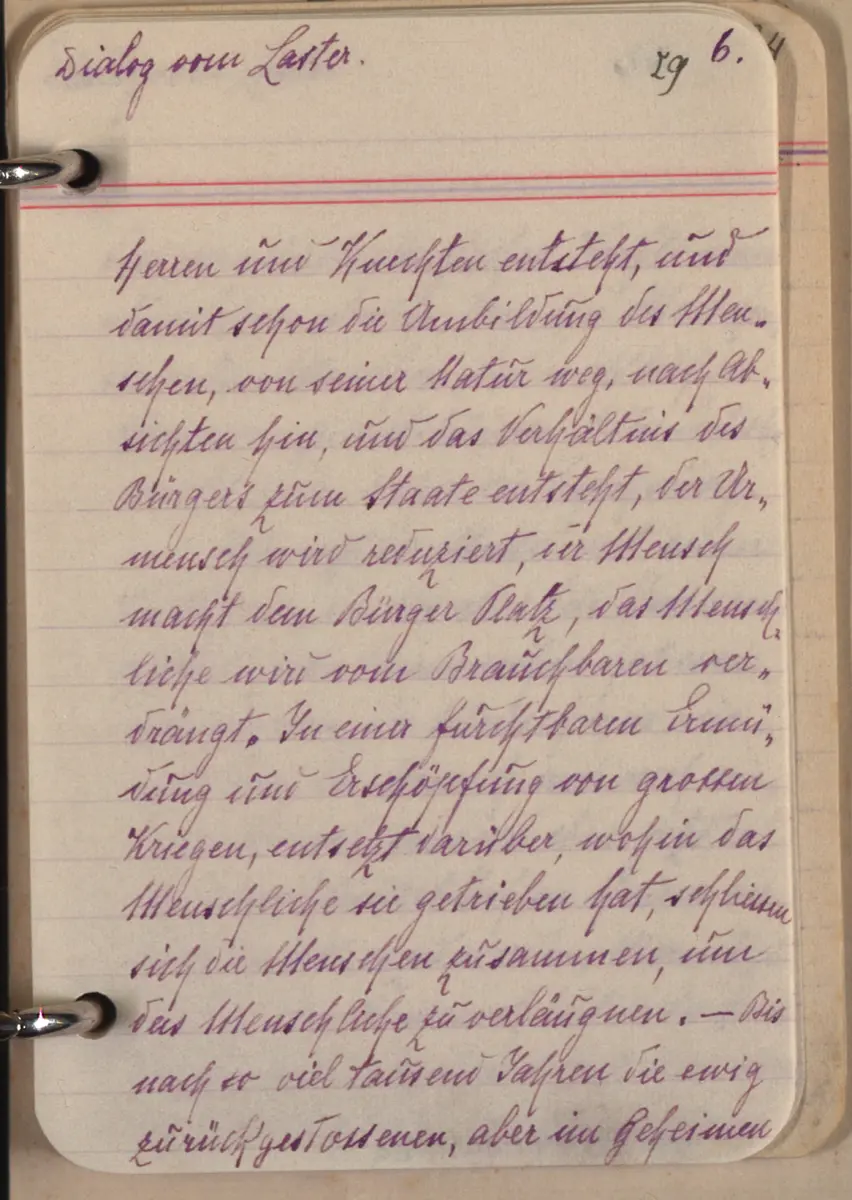 Dialog vom Laster.
19 6.
Herren und Knechten entsteht, und
damit schon die Umbildung des Men„
schen, von seiner Natur weg, nach Ab„
sichten hin, und das Verhältnis des
Bürgers zum Staate entsteht, der Ur„
mensch wird reduziert, der Mensch
macht dem Bürger Platz, das Mensch„
liche wird vom Brauchbaren ver„
drängt. In einer furchtbaren Ermü„
dung und Erschöpfung von grossen
Kriegen, entsetzt darüber, wohin das
Menschliche sie getrieben hat, schliessen
sich die Menschen zusammen, um
das Menschliche zu verläugnen. — Bis
nach so viel tausend Jahren die ewig
zurückgestossenen, aber im Geheimen